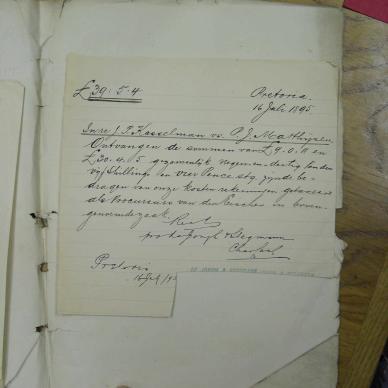 £39.5.4
Pretoria.
16 Juli 1895.
In re J. P. Kasselman vs. P. J. Matthijsen
Ontvangen de sommen van £9.0.11 en
£30.4.5 gezamenlijk negen en dertig ponden
vijf Shillings en vier Pence stg, zijnde be-
dragen van onze kosten rekeningen getaxeerd
als Procureurs van den Eischer in boven-
genoemde zaak.
Pretoria